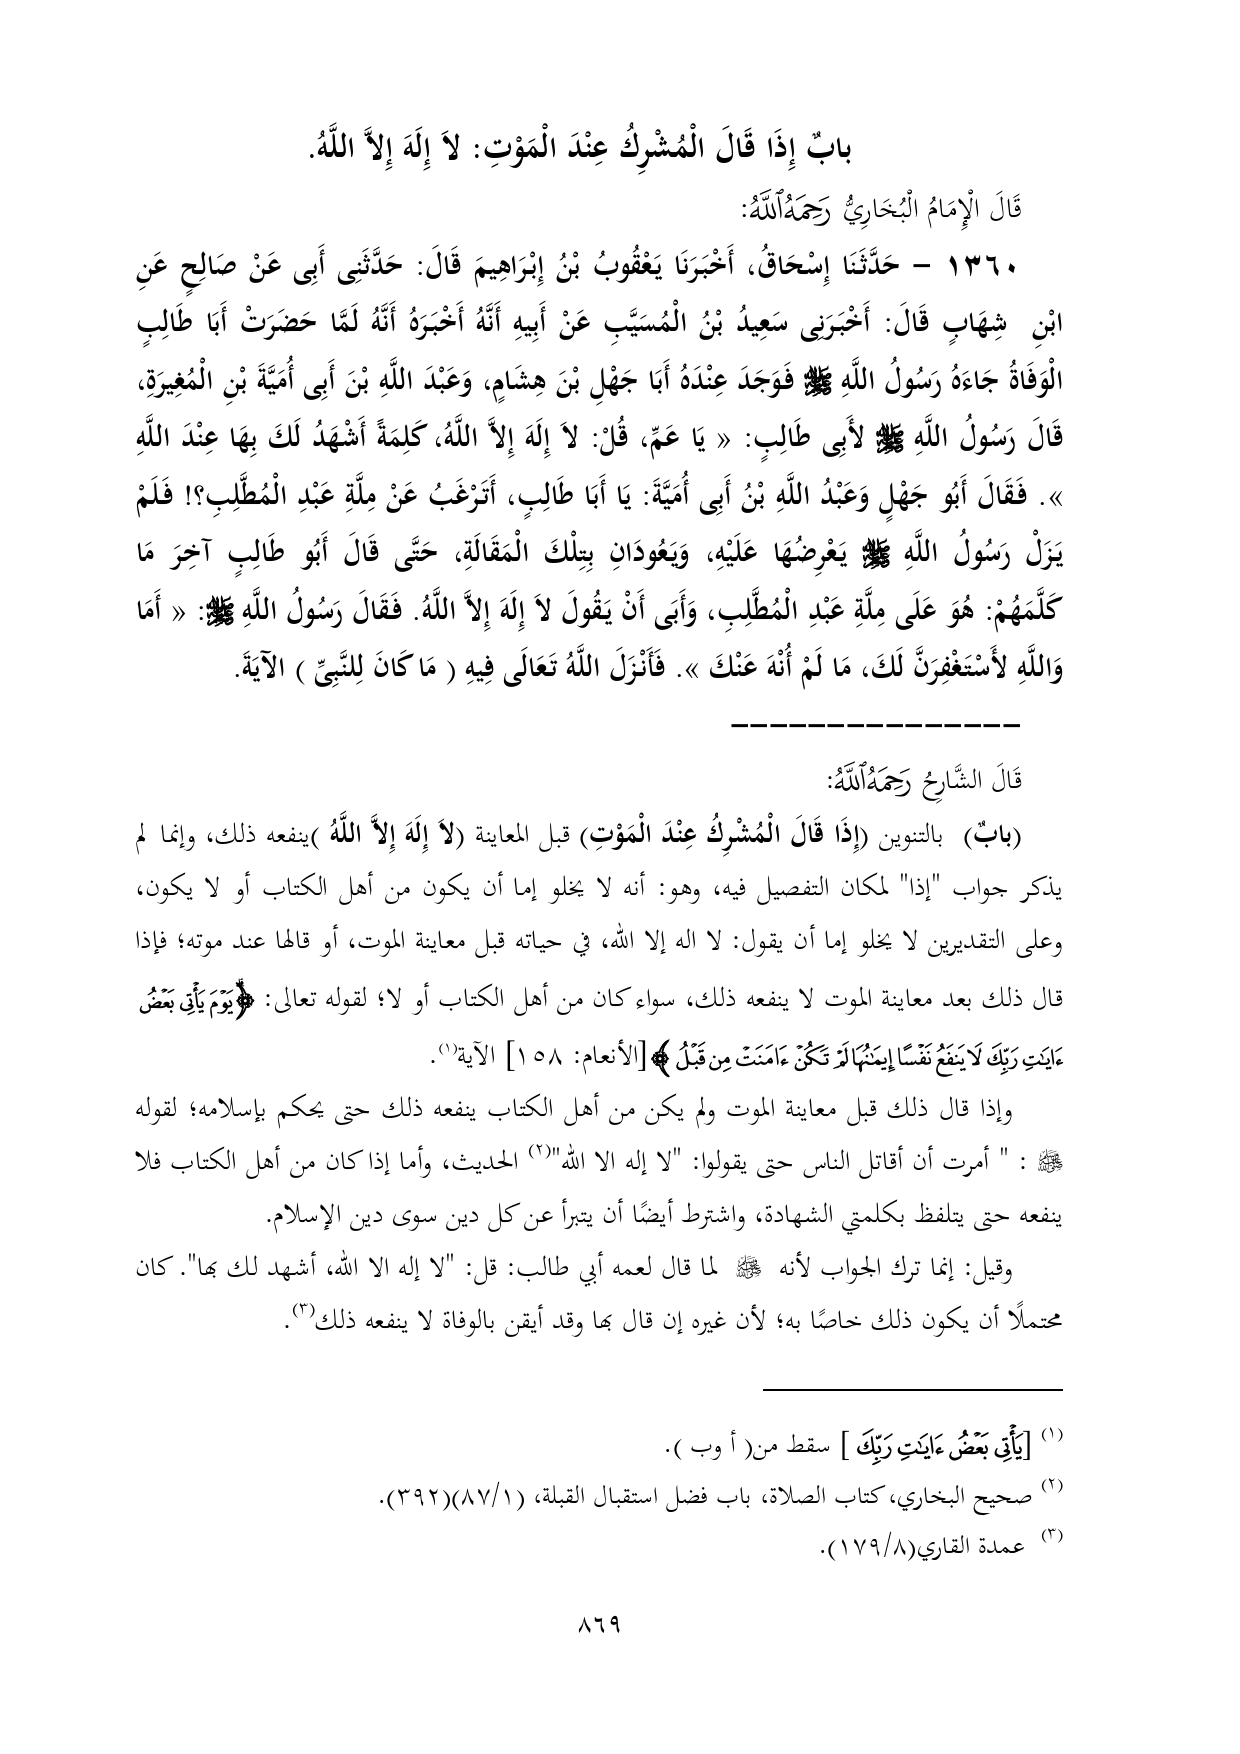 بابٌ إِذَا قَالَ الْمُشْرِكُ عِنْدَ الْمَوْتِ: لاَ إِلَهَ إِلاَّ اللَّهُ.
قَالَ الْإِمَامُ الْبُخَارِيُّ رَحِمَهُ ٱللَّهُ:
١٣٦٠ – حَدَّثَنَا إِسْحَاقُ، أَخْبَرَنَا يَعْقُوبُ بْنُ إِبْرَاهِيمَ قَالَ: حَدَّثَنِى أَبِى عَنْ صَالِحٍ عَنِ
ابْنِ شِهَابٍ قَالَ: أَخْبَرَنِى سَعِيدُ بْنُ الْمُسَيَّبِ عَنْ أَبِيهِ أَنَّهُ أَخْبَرَهُ أَنَّهُ لَمَّا حَضَرَتْ أَبَا طَالِبٍ
الْوَفَاةُ جَاءَهُ رَسُولُ اللَّهِ ﷺ فَوَجَدَ عِنْدَهُ أَبَا جَهْلِ بْنَ هِشَامٍ، وَعَبْدَ اللَّهِ بْنَ أَبِى أُمَيَّةَ بْنِ الْمُغِيرَةِ،
قَالَ رَسُولُ اللَّهِ ﷺ لأَبِى طَالِبٍ: « يَا عَمِّ، قُلْ: لاَ إِلَهَ إِلاَّ اللَّهُ، كَلِمَةً أَشْهَدُ لَكَ بِهَا عِنْدَ اللَّهِ
». فَقَالَ أَبُو جَهْلٍ وَعَبْدُ اللَّهِ بْنُ أَبِى أُمَيَّةَ: يَا أَبَا طَالِبٍ، أَتَرْغَبُ عَنْ مِلَّةِ عَبْدِ الْمُطَّلِبِ؟! فَلَمْ
يَزَلْ رَسُولُ اللَّهِ ﷺ يَعْرِضُهَا عَلَيْهِ، وَيَعُودَانِ بِتِلْكَ الْمَقَالَةِ، حَتَّى قَالَ أَبُو طَالِبٍ آخِرَ مَا
كَلَّمَهُمْ: هُوَ عَلَى مِلَّةِ عَبْدِ الْمُطَّلِبِ، وَأَبَى أَنْ يَقُولَ لاَ إِلَهَ إِلاَّ اللَّهُ. فَقَالَ رَسُولُ اللَّهِ ﷺ: « أَمَا
وَاللَّهِ لأَسْتَغْفِرَنَّ لَكَ، مَا لَمْ أُنْهَ عَنْكَ ». فَأَنْزَلَ اللَّهُ تَعَالَى فِيهِ ( مَا كَانَ لِلنَّبِىِّ ) الآيَةَ.
–––––––––––––––
قَالَ الشَّارِحُ رَحِمَهُ ٱللَّهُ:
(بابٌ) بالتنوين (إِذَا قَالَ الْمُشْرِكُ عِنْدَ الْمَوْتِ) قبل المعاينة (لاَ إِلَهَ إِلاَّ اللَّهُ )ينفعه ذلك، وإنما لم
يذكر جواب "إذا" لمكان التفصيل فيه، وهو: أنه لا يخلو إما أن يكون من أهل الكتاب أو لا يكون،
وعلى التقديرين لا يخلو إما أن يقول: لا اله إلا الله، في حياته قبل معاينة الموت، أو قالها عند موته؛ فإذا
قال ذلك بعد معاينة الموت لا ينفعه ذلك، سواء كان من أهل الكتاب أو لا؛ لقوله تعالى: ﴿يَوْمَ يَأْتِى بَعْضُ
ءَايَٰتِ رَبِّكَ لَا يَنفَعُ نَفْسًا إِيمَٰنُهَا لَمْ تَكُنْ ءَامَنَتْ مِن قَبْلُ ﴾[الأنعام: ١٥٨] الآية(١).
وإذا قال ذلك قبل معاينة الموت ولم يكن من أهل الكتاب ينفعه ذلك حتى يحكم بإسلامه؛ لقوله
ﷺ : " أمرت أن أقاتل الناس حتى يقولوا: "لا إله الا الله"(٢) الحديث، وأما إذا كان من أهل الكتاب فلا
ينفعه حتى يتلفظ بكلمتي الشهادة، واشترط أيضًا أن يتبرأ عن كل دين سوى دين الإسلام.
وقيل: إنما ترك الجواب لأنه ﷺ لما قال لعمه أبي طالب: قل: "لا إله الا الله، أشهد لك بها". كان
محتملًا أن يكون ذلك خاصًا به؛ لأن غيره إن قال بها وقد أيقن بالوفاة لا ينفعه ذلك(٣).
(١) [يَأْتِى بَعْضُ ءَايَٰتِ رَبِّكَ ] سقط من( أ وب ).
(٢) صحيح البخاري، كتاب الصلاة، باب فضل استقبال القبلة، (٨٧/١)(٣٩٢).
(٣) عمدة القاري(١٧٩/٨).
٨٦٩